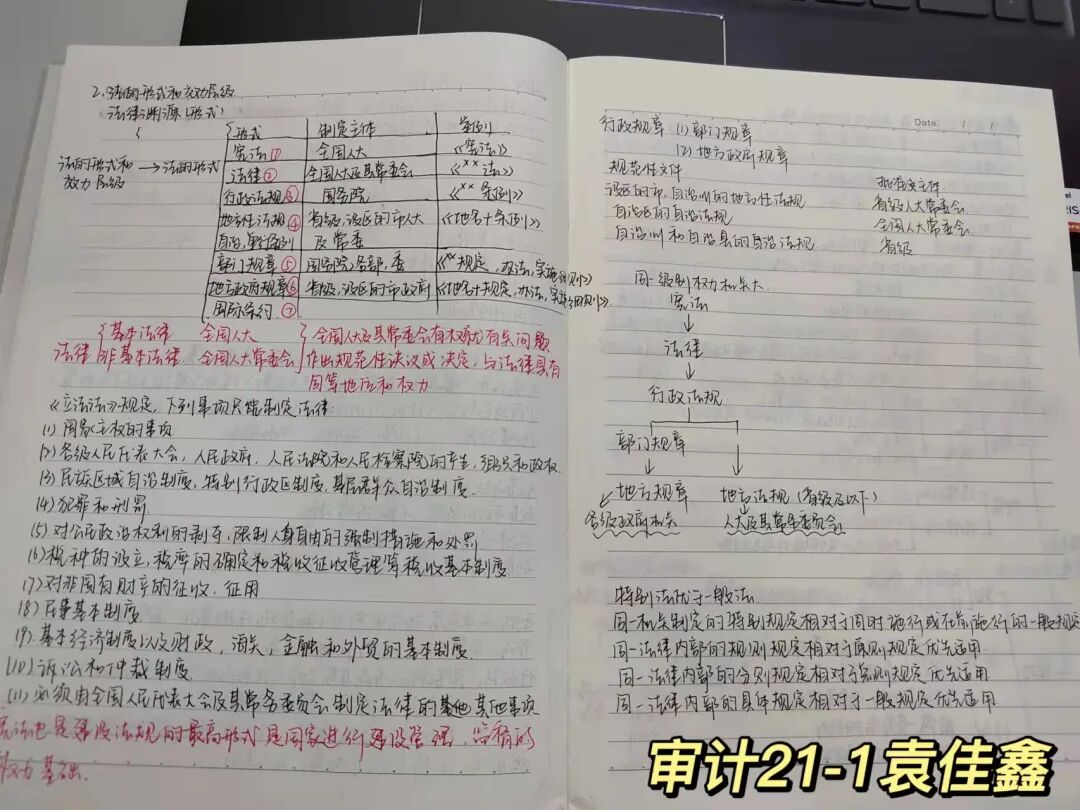 2、法的形式和效力层级
法律渊源(形式)
法的形式和效力层级 → 法的形式
形式 制定主体 举例
宪法① 全国人大 《宪法》
法律② 全国人大及其常委会 《××法》
行政法规③ 国务院 《××条例》
地方性法规④ 省级、设区的市人大 《地名+条例》
自治、单行条例 及常委
部门规章⑤ 国务院各部、委 《××规定,办法,实施细则》
地方政府规章⑥ 省级、设区的市政府 《地名+规定,办法,实施细则》
国际条约⑦
法律 基本法律 全国人大
非基本法律 全国人大常委会
全国人大及其常委会有权就有关问题
作出规范性决议或决定,与法律具有
同等地位和权力
《立法法》规定,下列事项只能制定法律:
(1)国家主权的事项
(2)各级人民代表大会,人民政府,人民法院和人民检察院的产生,组织和政权
(3)民族区域自治制度,特别行政区制度,基层群众自治制度
(4)犯罪和刑罚
(5)对公民政治权利的剥夺,限制人身自由的强制措施和处罚
(6)税种的设立,税率的确定和税收征收管理等税收基本制度
(7)对非国有财产的征收,征用
(8)民事基本制度
(9)基本经济制度以及财政,海关,金融和外贸的基本制度
(10)诉讼和仲裁制度
(11)必须由全国人民代表大会及其常务委员会制定法律的其他事项
宪法也是建设法规的最高形式是国家进行建设管理,监督的
权力基础.
Date. / /
行政规章:(1)部门规章
(2)地方政府规章
规范性文件
设区的市,自治州的地方性法规 省级人大常委会
自治区的自治法规 全国人大常委会
自治州和自治县的自治法规 省级
同一级别权力机关大
宪法
↓
法律
↓
行政法规
部门规章
地方规章 地方法规(省级及以下)
各级政府机关 人大及其常委会
特别法优于一般法
同一机关制定的特别规定相对于同时施行或在前施行的一般规定
同一法律内部的规则规定相对于原则规定优先适用
同一法律内部的分则规定相对于总则规定优先适用
同一法律内部的具体规定相对于一般规定优先适用
审计21-1袁佳鑫